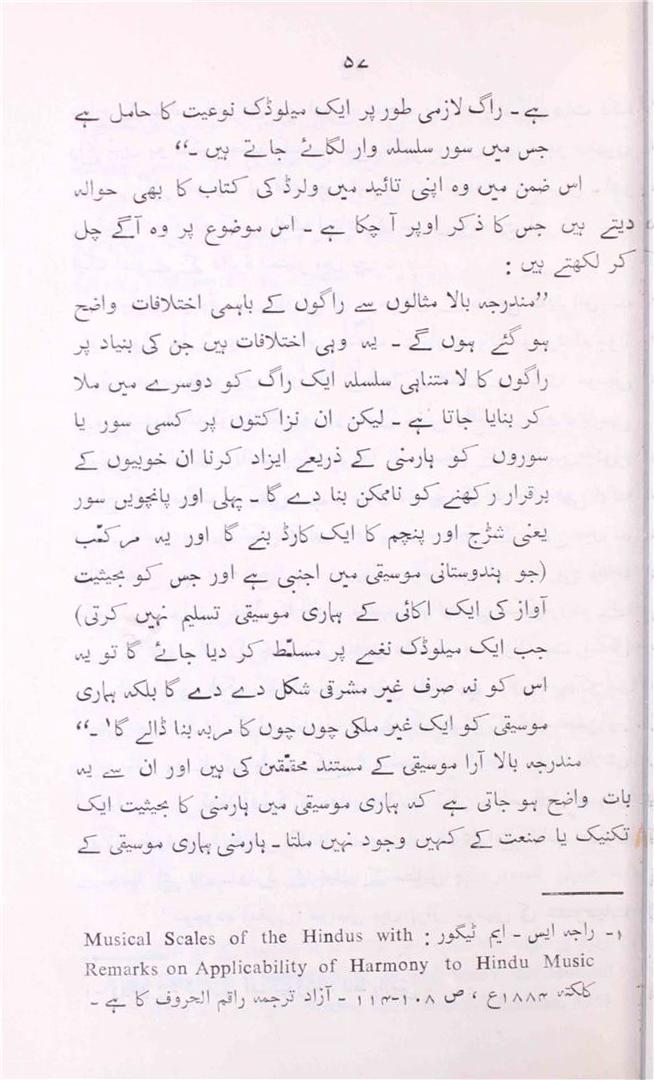 ۵۷
ہے ۔ راگ لازمی طور پر ایک میلوڈک نوعیت کا حامل ہے
جس میں سور سلسلہ وار لگائے جاتے ہیں ۔“
اس ضمن میں وہ اپنی تائید میں ولرڈ کی کتاب کا بھی حوالہ
دیتے ہیں جس کا ذکر اوپر آ چکا ہے ۔ اس موضوع پر وہ آگے چل
کر لکھتے ہیں :
”مندرجہ بالا مثالوں سے راگوں کے باہمی اختلافات واضح
ہو گئے ہوں گے ۔ یہ وہی اختلافات ہیں جن کی بنیاد پر
راگوں کا لا متناہی سلسلہ ایک راگ کو دوسرے میں ملا
کر بنایا جاتا ہے ۔ لیکن ان نزاکتوں پر کسی سور یا
سوروں کو ہارمنی کے ذریعے ایزاد کرنا ان خوبیوں کے
برقرار رکھنے کو ناممکن بنا دے گا ۔ پہلی اور پانچویں سور
یعنی شڑج اور پنچم کا ایک کارڈ بنے گا اور یہ مرکّب
(جو ہندوستانی موسیقی میں اجنبی ہے اور جس کو بحیثیت
آواز کی ایک اکائی کے ہماری موسیقی تسلیم نہیں کرتی)
جب ایک میلوڈک نغمے پر مسلّط کر دیا جائے گا تو یہ
اس کو نہ صرف غیر مشرقی شکل دے دے گا بلکہ ہماری
موسیقی کو ایک غیر ملکی چوں چوں کا مربہ بنا ڈالے گا۱ ۔“
مندرجہ بالا آرا موسیقی کے مستند محقّقین کی ہیں اور ان سے یہ
بات واضح ہو جاتی ہے کہ ہماری موسیقی میں ہارمنی کا بحیثیت ایک
تکنیک یا صنعت کے کہیں وجود نہیں ملتا ۔ ہارمنی ہماری موسیقی کے
۱۔ راجہ ایس ۔ ایم ٹیگور : Musical Scales of the Hindus with
Remarks on Applicability of Harmony to Hindu Music
کلکتہ ۱۸۸۴ع ، ص ۱۰۸-۱۱۴ ۔ آزاد ترجمہ راقم الحروف کا ہے ۔